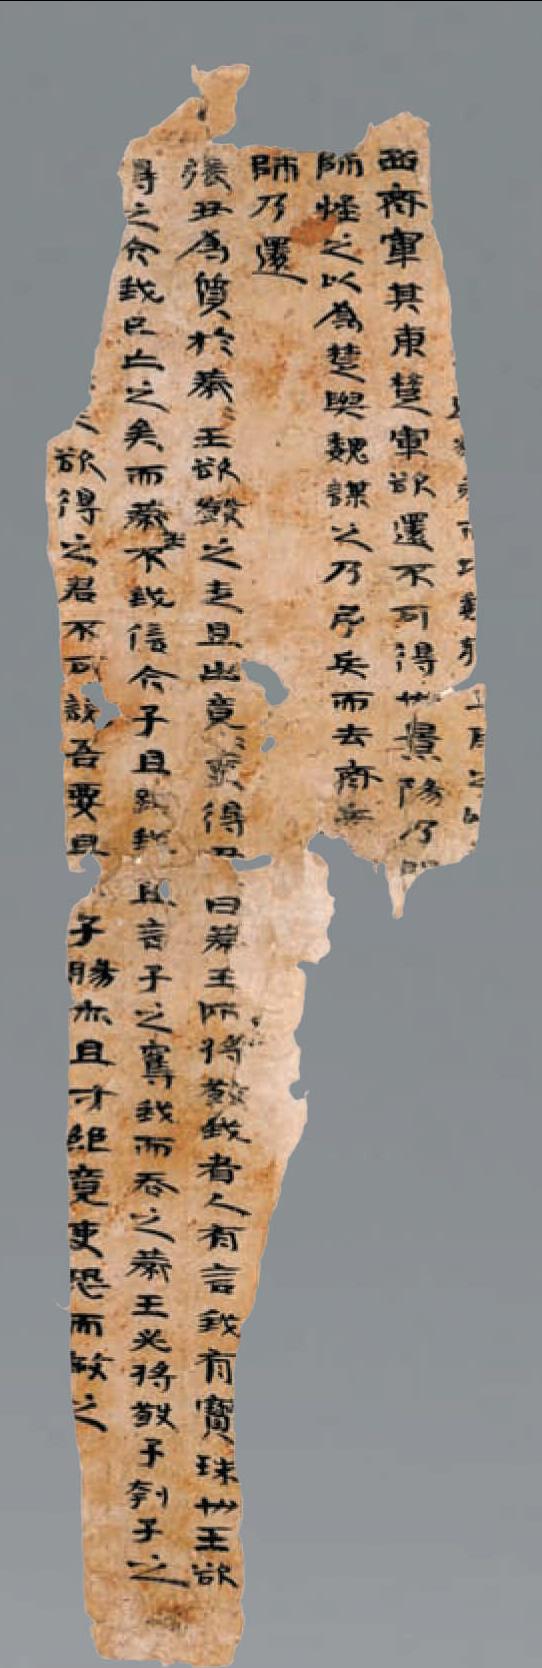 西齊軍其東楚軍欲還不可得也景陽乃
師怪之以為楚與魏謀之乃引兵而去齊兵
師乃還
張丑為質於燕=王欲殺之走且出竟=吏得丑曰燕王所將殺我者人有言我有寶珠也王欲
得之今我已亡之矣而燕王不我信今子且致我且言子之奪我而吞之燕王必將殺子刳子之
欲得之君不可說吾要且子腸亦且寸絕竟吏恐而赦之